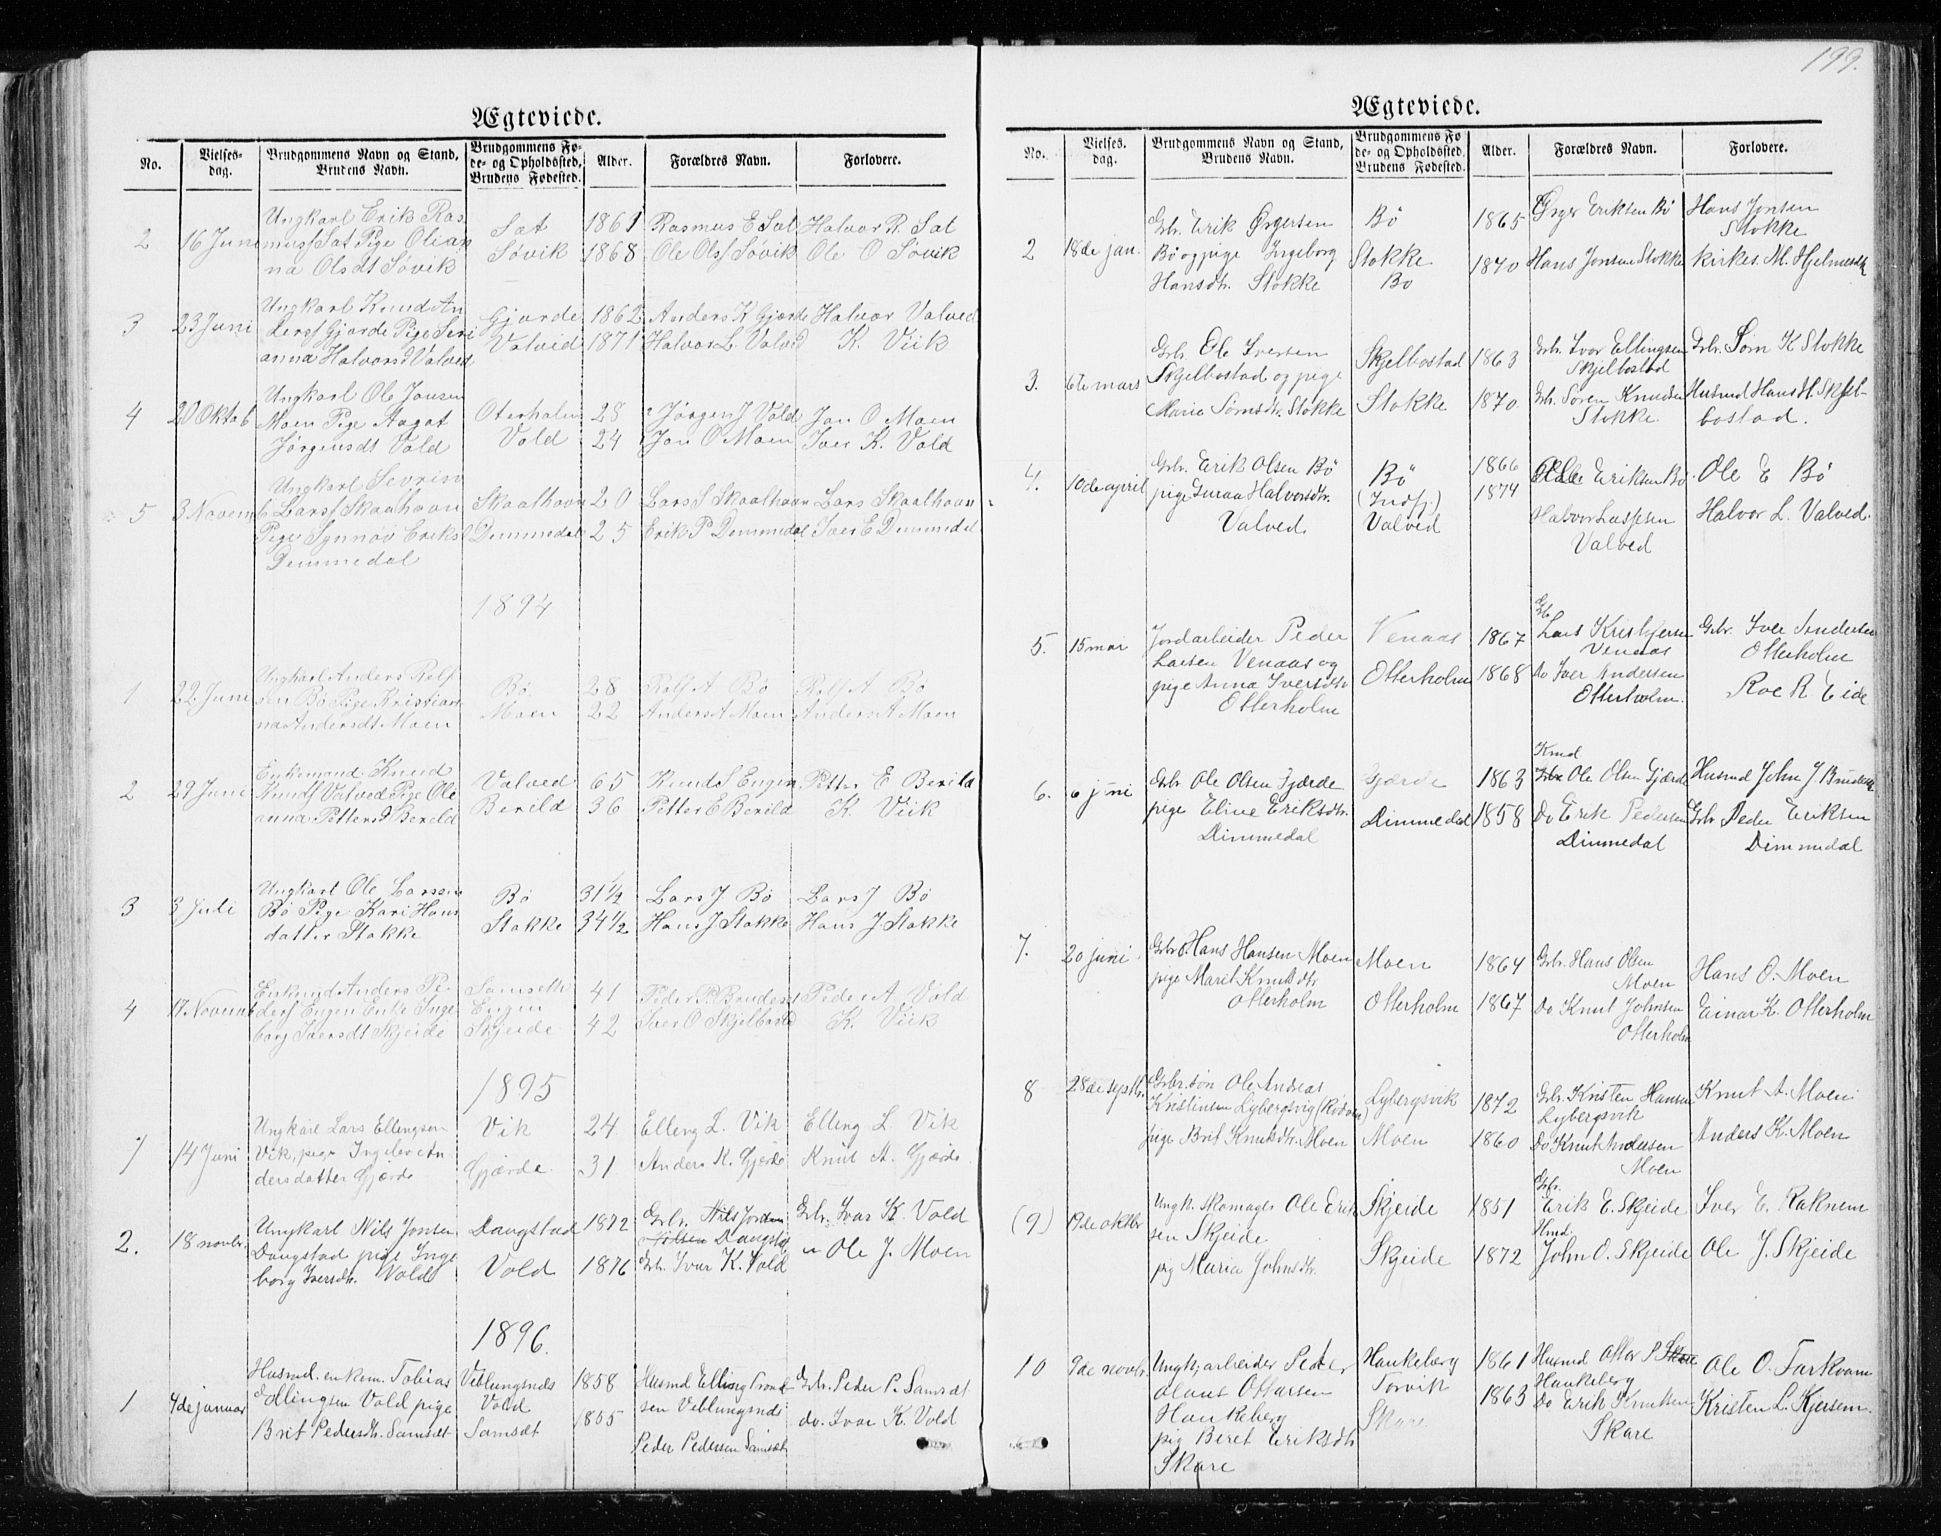 199.
Ægteviede.
No.
Vielses-
dag.
Brudgommens Navn og Stand,
Brudens Navn.
Brudgommens Fø-
de- og Opholdssted,
Brudens Fødested.
Alder.
Forældres Navn.
Forlovere.
2
16 Juni
Ungkarl Erik Ras
muss Sat Pige Olian
na Olsdt Søvik
Sat
Søvik
1861
1868
Rasmus E Sat
Ole Ols Søvik
Halvor R. Sat
Ole O Søvik
3
23 Juni
Ungkarl Knud An
ders Gjørde Pige Seri
anna Halvorsd Valved
Gjørde
Valved
1862
1871
Anders K Gjørde
Halvor L. Valved
Halvor Valved
K. Viik
4
20 Oktob
Ungkarl Ole Jonsen
Moen Pige Aagot
Jørgensdt Vold
Oterholm
Vold
28
24
Jørgen J Vold
Jon O Moen
Jon O Moen
Iver K. Vold
5
3 Novem
Ungkarl Sevrin
Lars Skaalhavn
Pige Synnøv Eriksd
Demmedal
Skaalhavn
Demmedal
20
25
Lars S Skaalhavn
Erik P Demmedal
Lars Skaalhavn
Iver E Demmedal
1894
1
22 Juni
Ungkarl Anders Rolf
sen Bø Pige Kristian
na Andersdt Moen
Bø
Moen
28
22
Rolf A Bø
Anders A Moen
Rolf A Bø
Anders A Moen
2
29 Juni
Enkemand Knud
Knuds Valved Pige Ole
anna Pettersd Berild
Valved
Berild
65
36
Knud S Engen
Petter E Berild
Petter E Berild
K. Viik
3
3 Juli
Ungkarl Ole Larssen
Bø Pige Kari Hans
datter Stokke
Bø
Stokke
31 1/2
34 1/2
Lars J Bø
Hans J Stokke
Lars J Bø
Hans J. Stokke
4
17 Novemb
Enkmd Anders Pe
ders Engen Enke Inge
borg Iversdt Skjeide
Samseth
Engen
Skjeide
41
42
Peder P. Brudeset
Iver O Skjelbostad
Peder A Vold
K. Viik
1895
1
14 Juni
Ungkarl Lars Ellingsen
Vik, pige Ingelev An
dersdatter Gjørde
Vik
Gjærde
24.
31.
Elling L. Vik
Anders K. Gjørde
Elling L. Vik
Knut A. Gjørde
2.
18 novbr.
Ungkarl Nils Jonsen
Daugstad pige Inge
borg Iversdtr. Vold
Daugstad
Vold
1872
1876
Gbr. Nils Jordan
Nilsen Daugstad
Gbr. Ivar K. Vold
Gbr. Ivar K. Vold
" Ole J. Moen
1896.
1
4de januar
Husmd. enkem. Tobias
Ellingsen Vold pige
Brit Pedersdtr. Samsæt
Veblungsnds
Vold
Samsæt
1858
1855
Husmd Elling Trond-
sen Veblungsnds
Peder Pedersen Samsæt
Gbr. Peder P. Samsæt
do. Ivar K. Vold
Ægteviede.
No.
Vielses.
dag.
Brudgommens Navn og Stand,
Brudens Navn.
Brudgommens Fø
de- og Opholdssted,
Brudens Fødested.
Alder.
Forældres Navn.
Forlovere.
2
18de jan.
Gbr. Erik Ørgersen
Bø og pige Ingeborg
Hansdtr. Stokke
Bø
Stokke
Bø
1865
1870
Ørger Eriksen Bø
Hans Jonsen Stokke
Hans Jonsen
Stokke
kirkes. M. Hjelmesæt
3.
6te mars
Gbr. Ole Iversen
Skjelbostad og pige
Marie Sørnsdtr. Stokke
Skjelbostad
Stokke
1863
1870
Gbr. Ivor Ellingsen
Skjelbostad
Gbr. Søren Knudsen
Stokke.
Gbr. Sørn K Stokke
Husmd Hans H. Skjel-
bostad.
4.
10de april
Gbr. Erik Olsen Bø
pige Guraa Halvorsdtr.
Valved.
Bø
(Indfj)
Valved
1866
1874
Ole Eriksen Bø
Halvor Larssen
Valved
Ole E Bø
Halvor L. Valved.
5.
15 mai
Jordarbeider Peder
Larsen Venaas og
pige Anna Iversdtr
Otterholm
Venaas
Otterholm
1867
1868
Gbr
Lars Kristjersen
Venaas
Do Iver Andersen
Otterholm.
Gbr. Iver Andersen
Otterholm
Roe R. Eide
6.
6 juni
Gbr Ole Olsen Gjærde
pige Eline Eriksdtr.
Dimmedal
Gjærde
Dimmedal
1863
1858
Kmd
Gbr Ole Olsen Gjærde
Do Erik Pedersen
Dimmedal
Husmd John J. Brudesæt
Gbr Peder Eriksen
Dimmedal
7.
20 juni
Gbr. Hans Hansen Moen
pige Marit Knutsdtr
Otterholm
Moen
Otterholm
1864
1867
Gbr. Hans Olsen
Moen
Do Knut Johnsen
Otterholm
Hans O. Moen
Einar K. Otterholm
8
28de septbr.
Gbr. søn Ole Andreas
Kristensen Lybergsvig (Rødven)
pige Brit Knutsdtr. Moen
Lybergsvik
Moen
1872
1860
Gbr. Kristen Hansen
Lybergsvik
Do Knut Andersen
Moen
Knut A. Moen
Anders K. Moen
(9)
19de oktbr
Ungk. skomager Ole Erik
sen Skjeide
pig Maria Johnsdtr.
Skjeide
Skjeide
1851
1872
Gbr.
Erik E. Skjeide
Hmd
John O. Skjeide
Iver E. Raknem
Ole J. Skjeide
10
9de novbr.
Ungk; arbeider Peder
Olaus Ottarsen
Haukeberg
pig Beret Eriksdtr
Skare
Haukeberg
Torvik
Skare
1861
1863
Husmd Ottar P. Skare
Haukeberg
Do Erik Knutsen
Skare
Ole O. Farkvam
Kristen L. Kjersem.